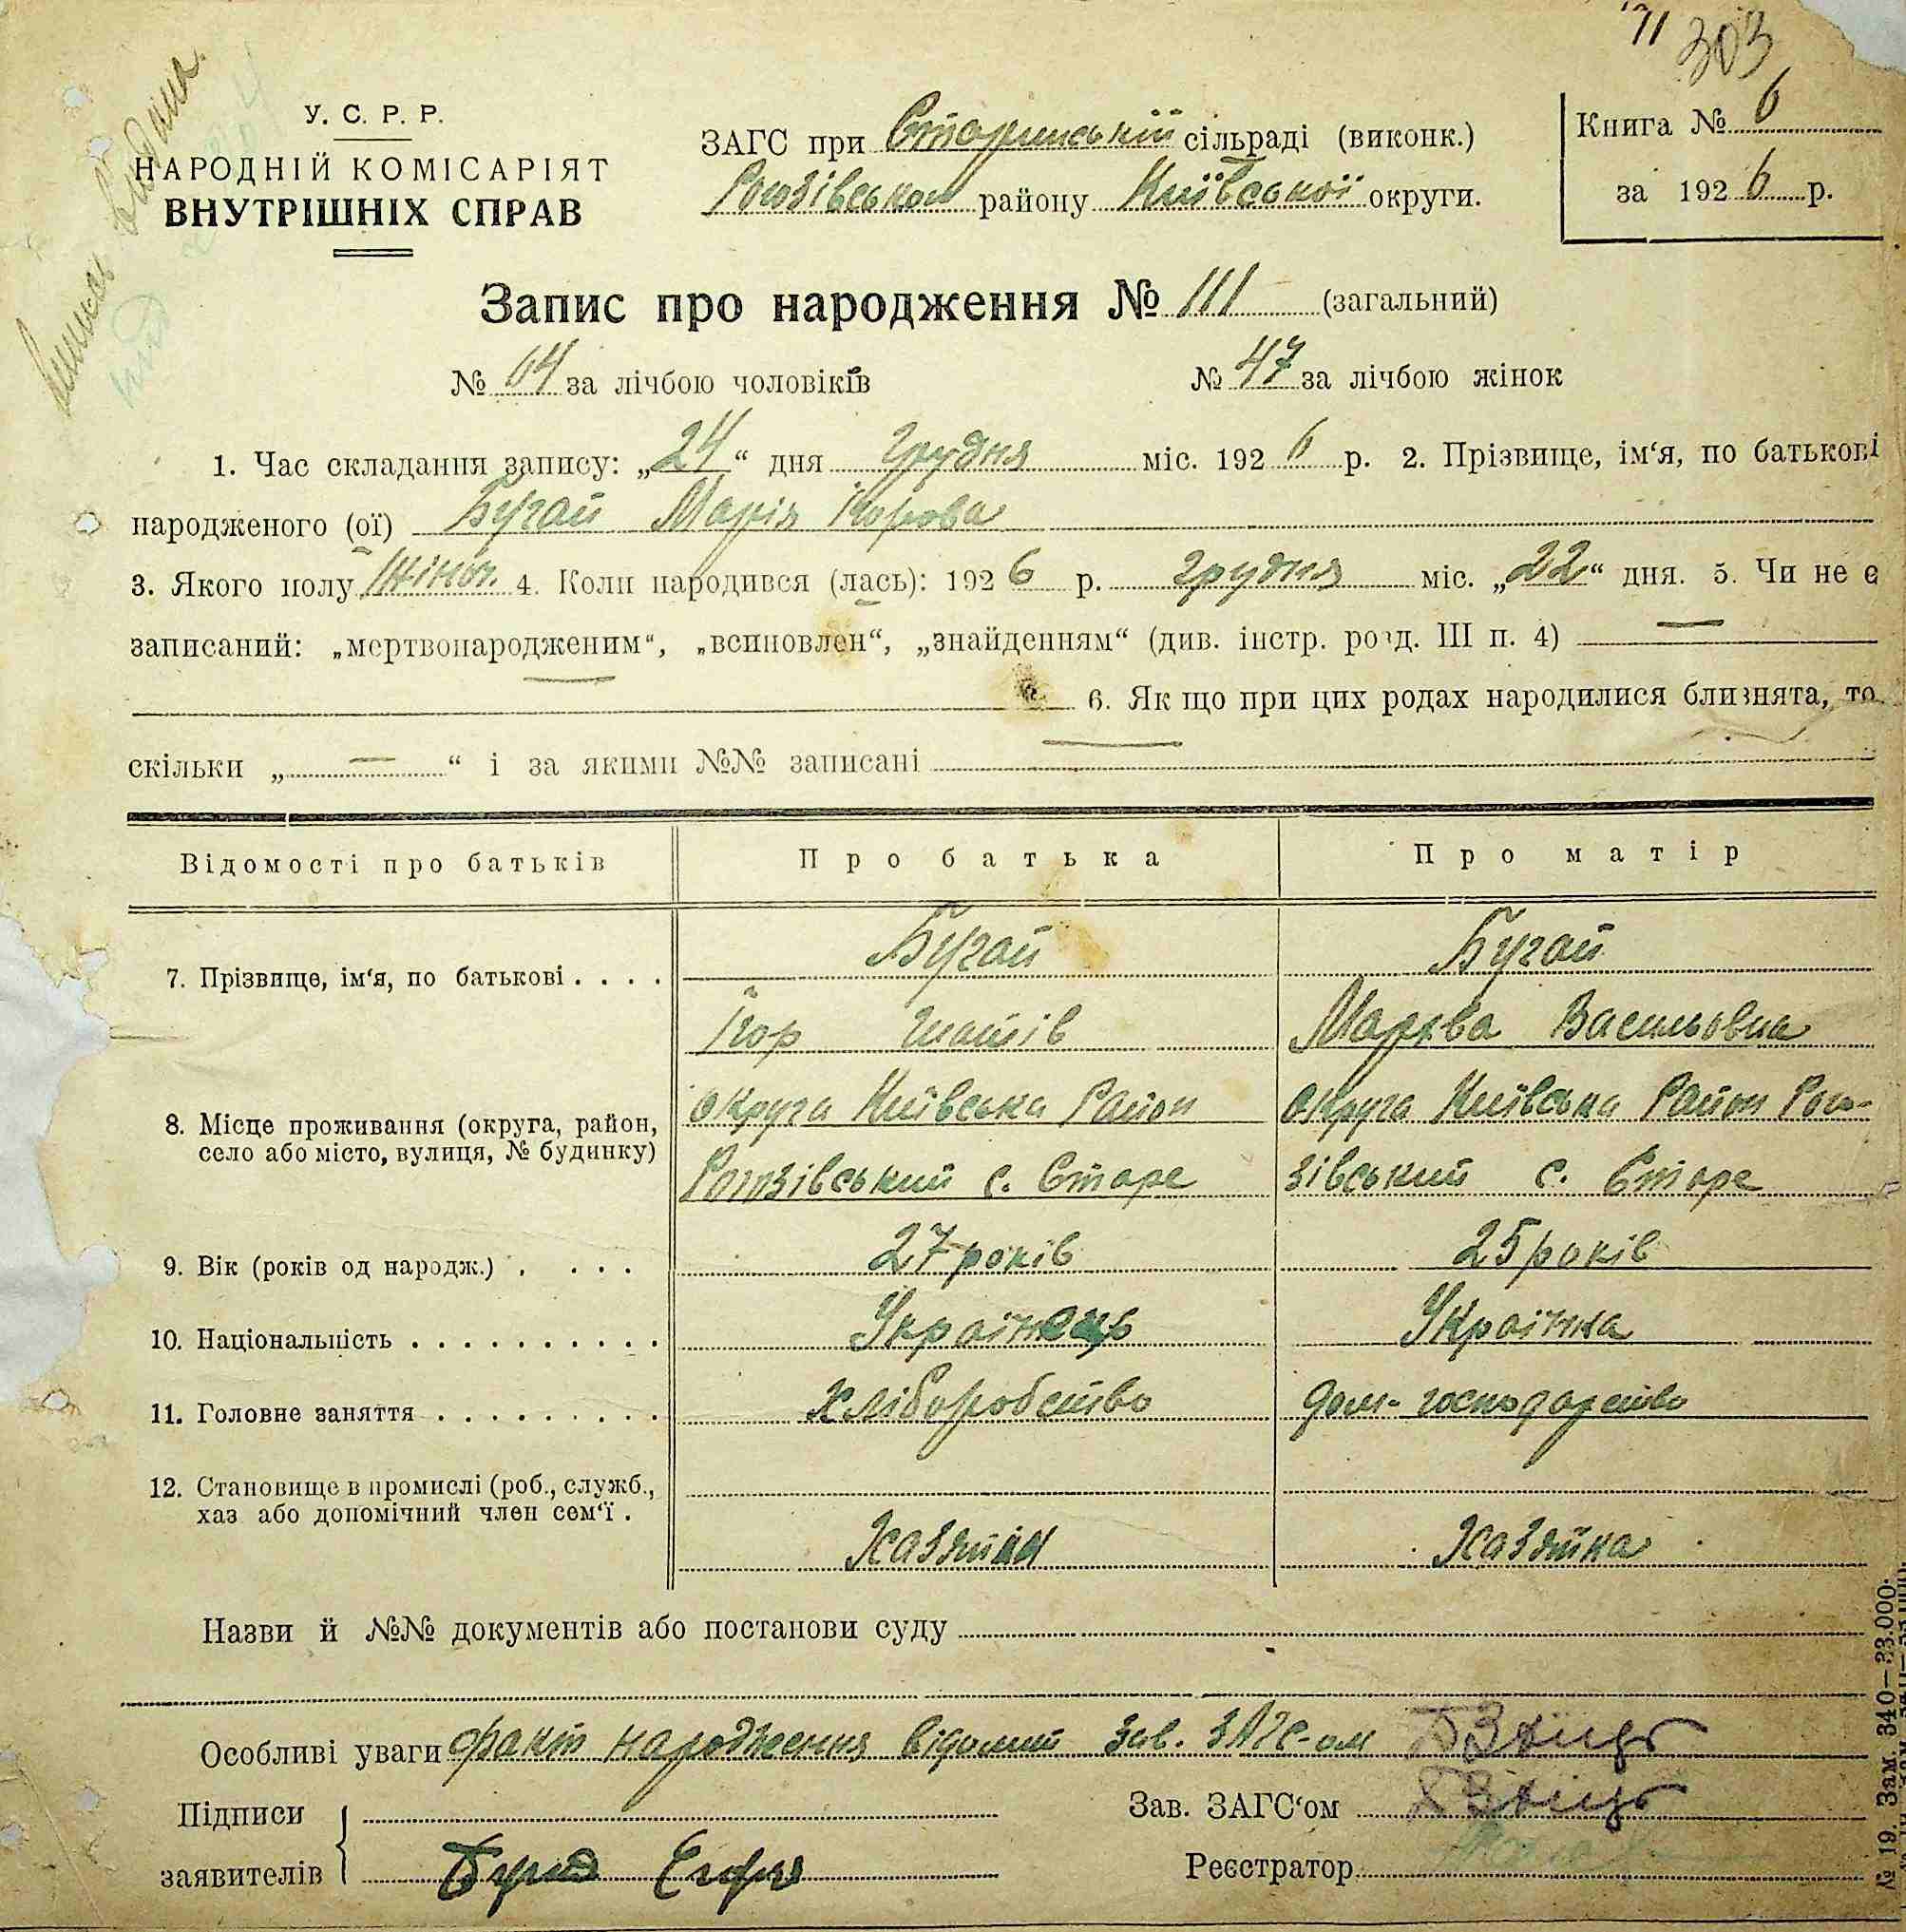 71 303
виписка видана
У. С. Р. Р.
НАРОДНІЙ КОМІСАРІЯТ
ВНУТРІШНІХ СПРАВ
ЗАГС при Старинській сільраді (виконк.)
Рогозівськом району Київської округи.
Книга № 6
за 1926 р.
Запис про народження № 111 (загальний)
№ 64 за лічбою чоловіків № 47 за лічбою жінок
1. Час складання запису: „24“ дня грудня міс. 1926 р. 2. Прізвище, ім‘я, по батькові
народженого (ої) Бугай Марія Ігорова
3. Якого полу жіноч. 4. Коли народився (лась): 1926 р. грудня міс. „22“ дня. 5. Чи не є
записаний: „мертвонародженим“, „всиновлен“, „знайденням“ (див. інстр. розд. III п. 4) —
6. Як що при цих родах народилися близнята, то
скільки „—“ і за якими №№ записані
Відомості про батьків Про батька Про матір
7. Прізвище, ім‘я, по батькові . . . . Бугай Бугай
Ігор Васильовна
8. Місце проживання (округа, район, село або місто, вулиця, № будинку) округа Київська Район округа Київська Район Рого-
Рогозівський с. Старе зівський с. Старе
9. Вік (років од народж.) . . . . 27 років 25 років
10. Національність . . . . . . . . . . Українець Українка
11. Головне заняття . . . . . . . . . Хліборобство дом-господарство
12. Становище в промислі (роб., служб.,
хаз або допомічний член сем‘ї . Хазяїн Хазяйка
Назви й №№ документів або постанови суду
Особливі уваги факт народження відомий Зав. ЗАГС-ом
Підписи
заявителів Бугай
Зав. ЗАГС‘ом
Реєстратор
№ 19. Зам. 340—23.000.